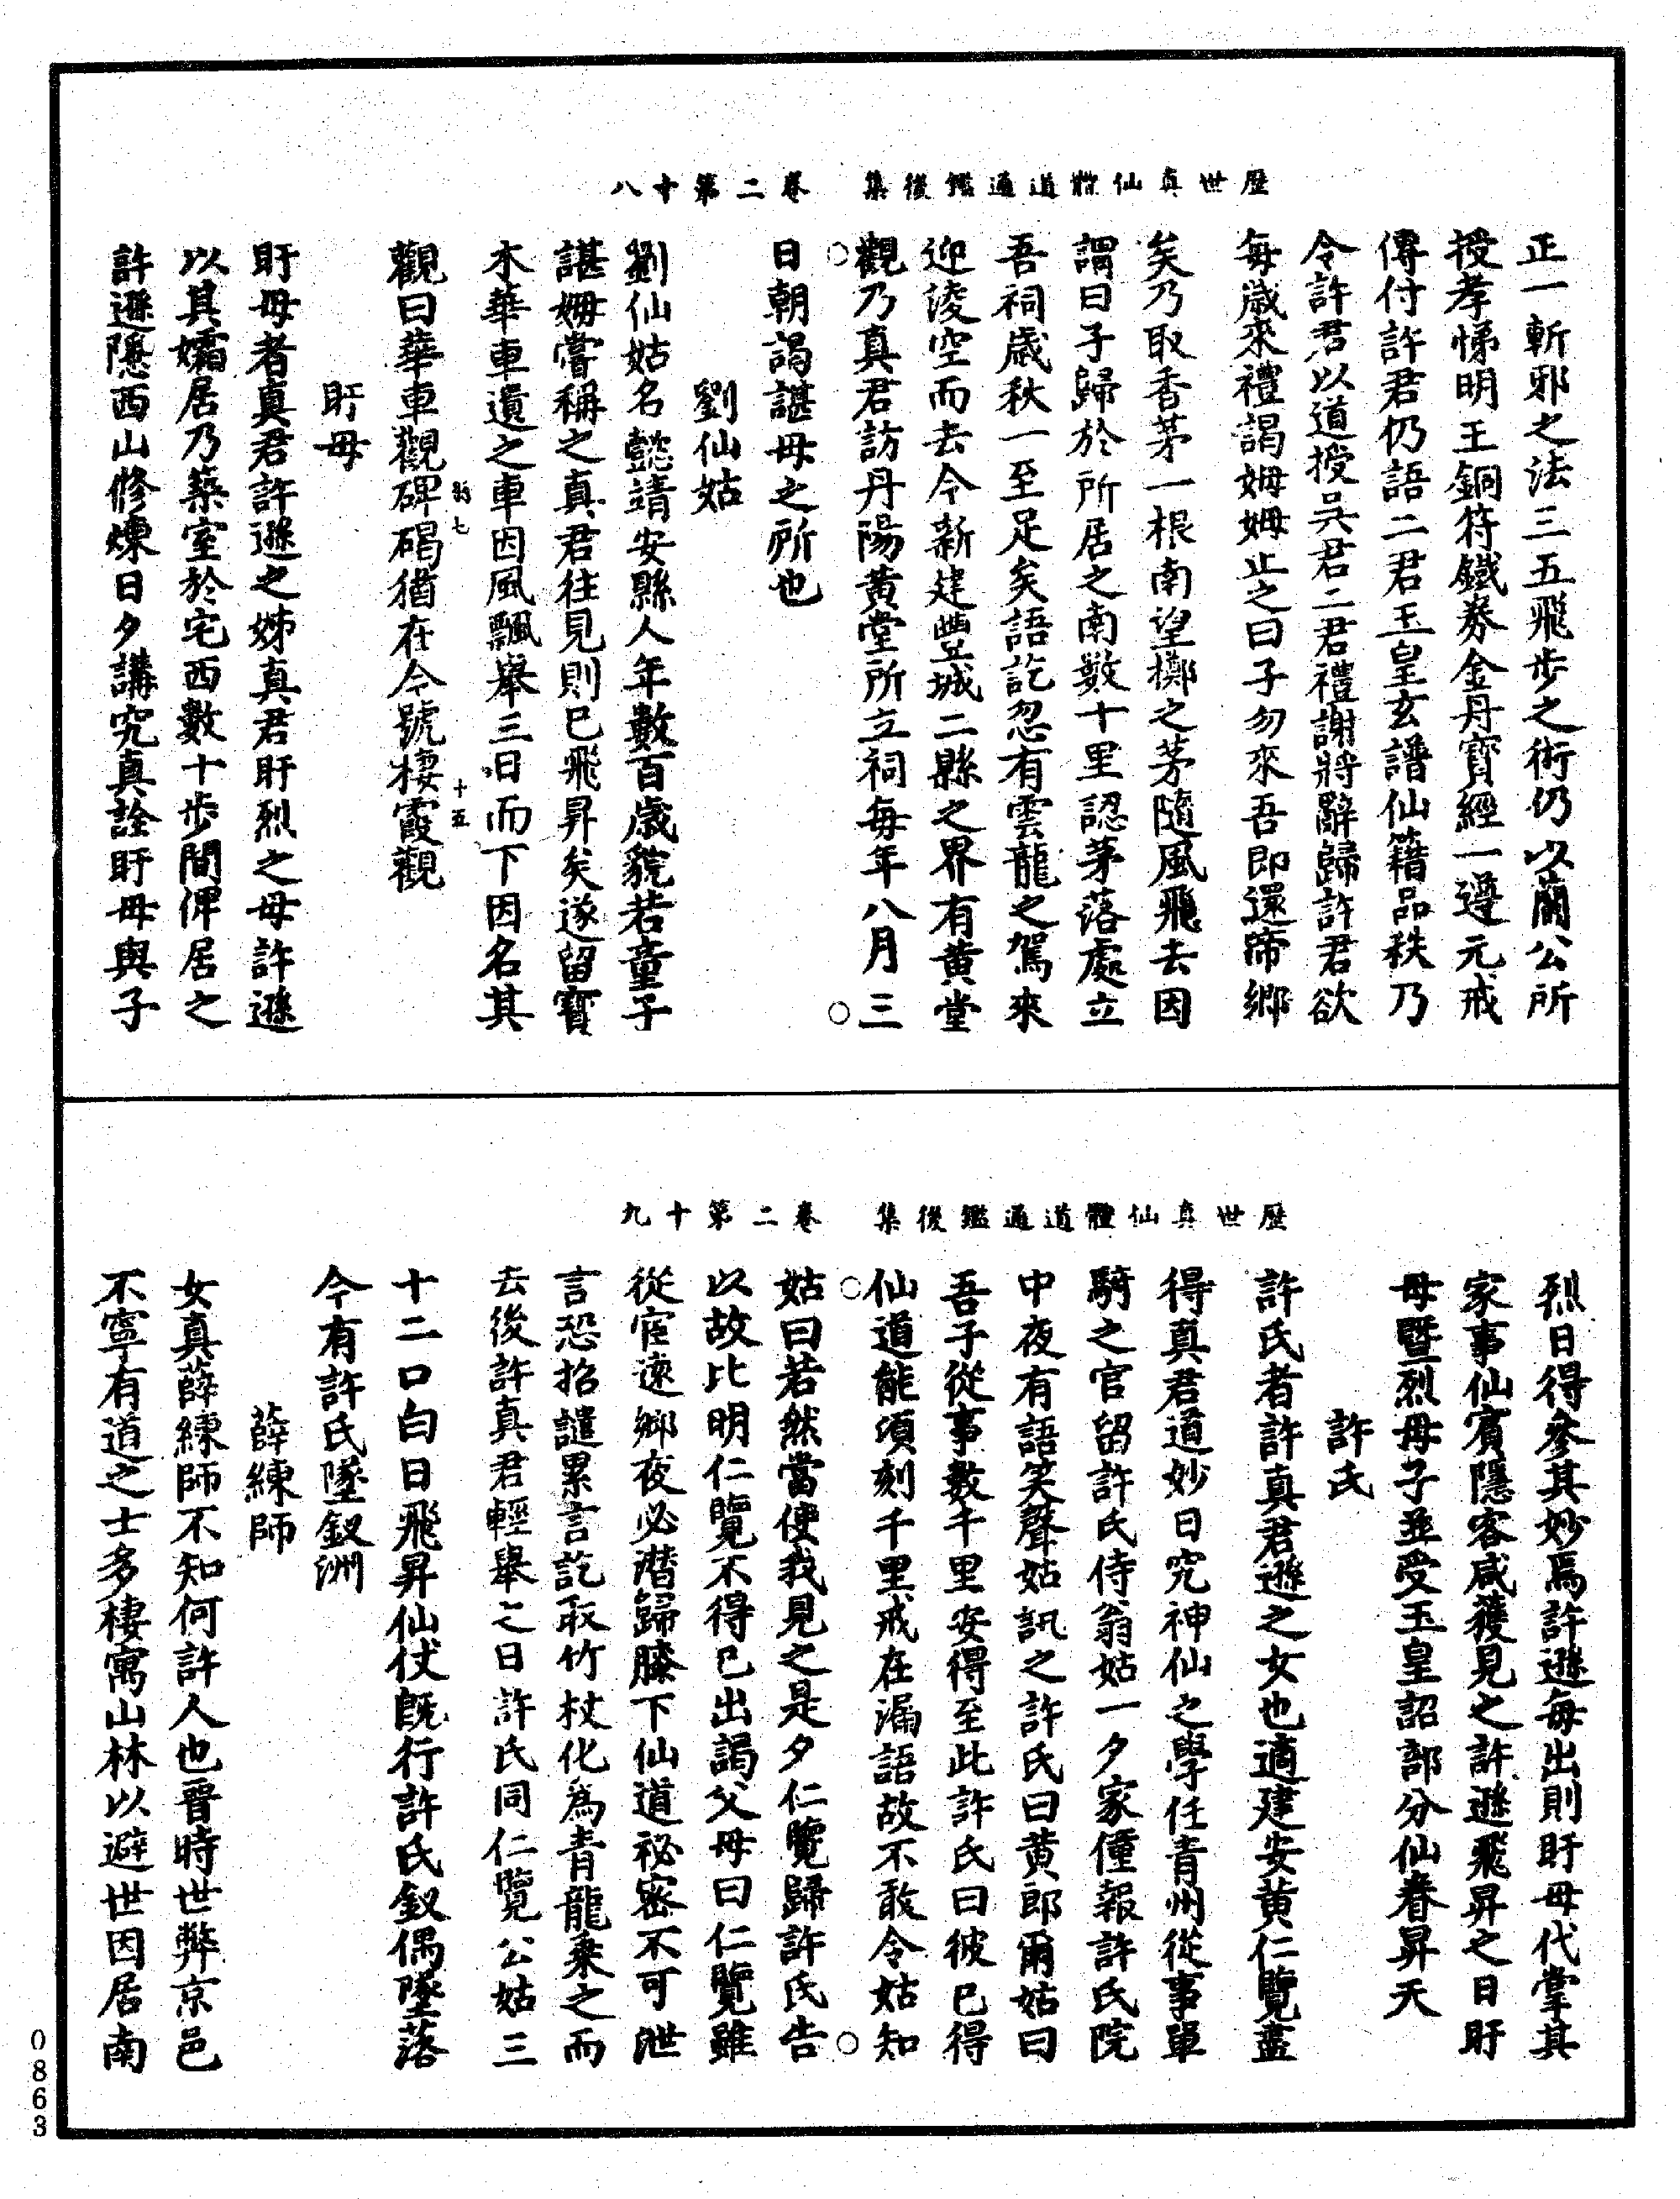 歷世真仙體道通鑑後集　卷二第十八
正一斬邪之法三五飛步之術仍以蘭公所
授孝悌明王銅符鐵券金丹寶經一遵元戒
傳付許君仍語二君玉皇玄譜仙籍品秩乃
令許君以道授吳君二君禮謝將辭歸許君欲
每歲來禮謁姆姆止之曰子勿來吾即還帝鄉
矣乃取香茅一根南望擲之茅隨風飛去因
謂曰子歸於所居之南數十里認茅落處立
吾祠歲秋一至足矣語訖忽有雲龍之駕來
迎淩空而去今新建豐城二縣之界有黃堂
觀乃真君訪丹陽黃堂所立祠每年八月三
日朝謁諶母之所也
劉仙姑
劉仙姑名懿靖安縣人年數百歲貌若童子
諶姆嘗稱之真君往見則已飛昇矣遂留寶
木華車遺之車因風飄舉三日而下因名其
觀曰華車觀碑碣猶在今號棲霞觀
十五
盱母
盱母者真君許遜之姊真君盱烈之母許遜
以其孀居乃築室於宅西數十步間俾居之
許遜隱西山修煉日夕講究真詮盱母與子
歷世真仙體道通鑑後集　卷二第十九
烈日得參其妙焉許遜每出則盱母代掌其
家事仙賓隱客咸獲見之許遜飛昇之日盱
母暨烈母子並受玉皇詔部分仙眷昇天
許氏
許氏者許真君遜之女也適建安黃仁覽盡
得真君道妙日究神仙之學任青州從事單
騎之官留許氏侍翁姑一夕家僮報許氏院
中夜有語笑聲姑訊之許氏曰黃郎爾姑曰
吾子從事數千里安得至此許氏曰彼已得
仙道能頃刻千里戒在漏語故不敢令姑知
姑曰若然當使我見之是夕仁覽歸許氏告
以故比明仁覽不得已出謁父母曰仁覽雖
從宦遠鄉夜必潛歸膝下仙道祕密不可泄
言恐招譴累言訖取竹杖化為青龍乘之而
去後許真君輕舉之日許氏同仁覽公姑三
十二口白日飛昇仙仗既行許氏釵偶墜落
今有許氏墜釵洲
薛練師
女真薛練師不知何許人也晉時世弊京邑
不寧有道之士多棲寓山林以避世因居南
0863